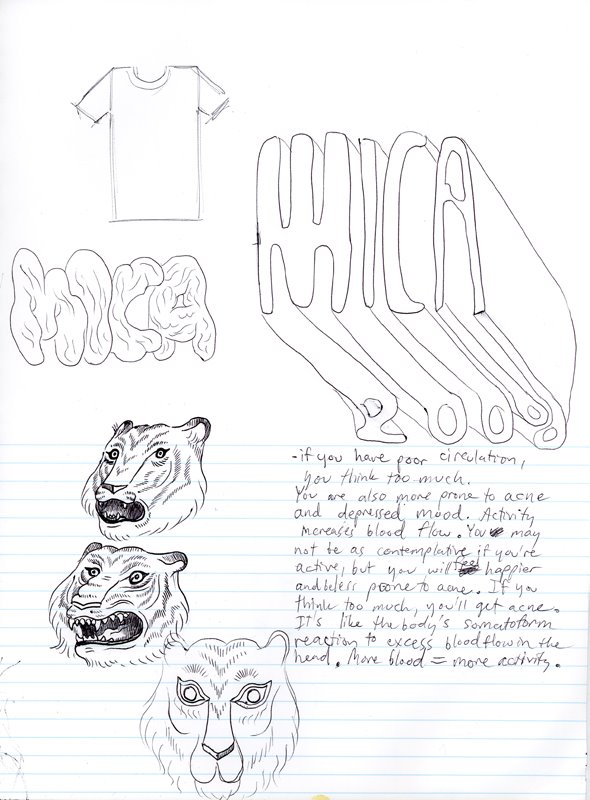 MICA
MICA
-if you have poor circulation,
you think too much.
You are also more prone to acne
and depressed mood. Activity
increases blood flow. You may
not be as contemplative if you're
active, but you will feel happier
and be less prone to acne. If you
think too much, you'll get acne.
It's like the body's somatoform
reaction to excess blood flow in the
head. More blood = more activity.